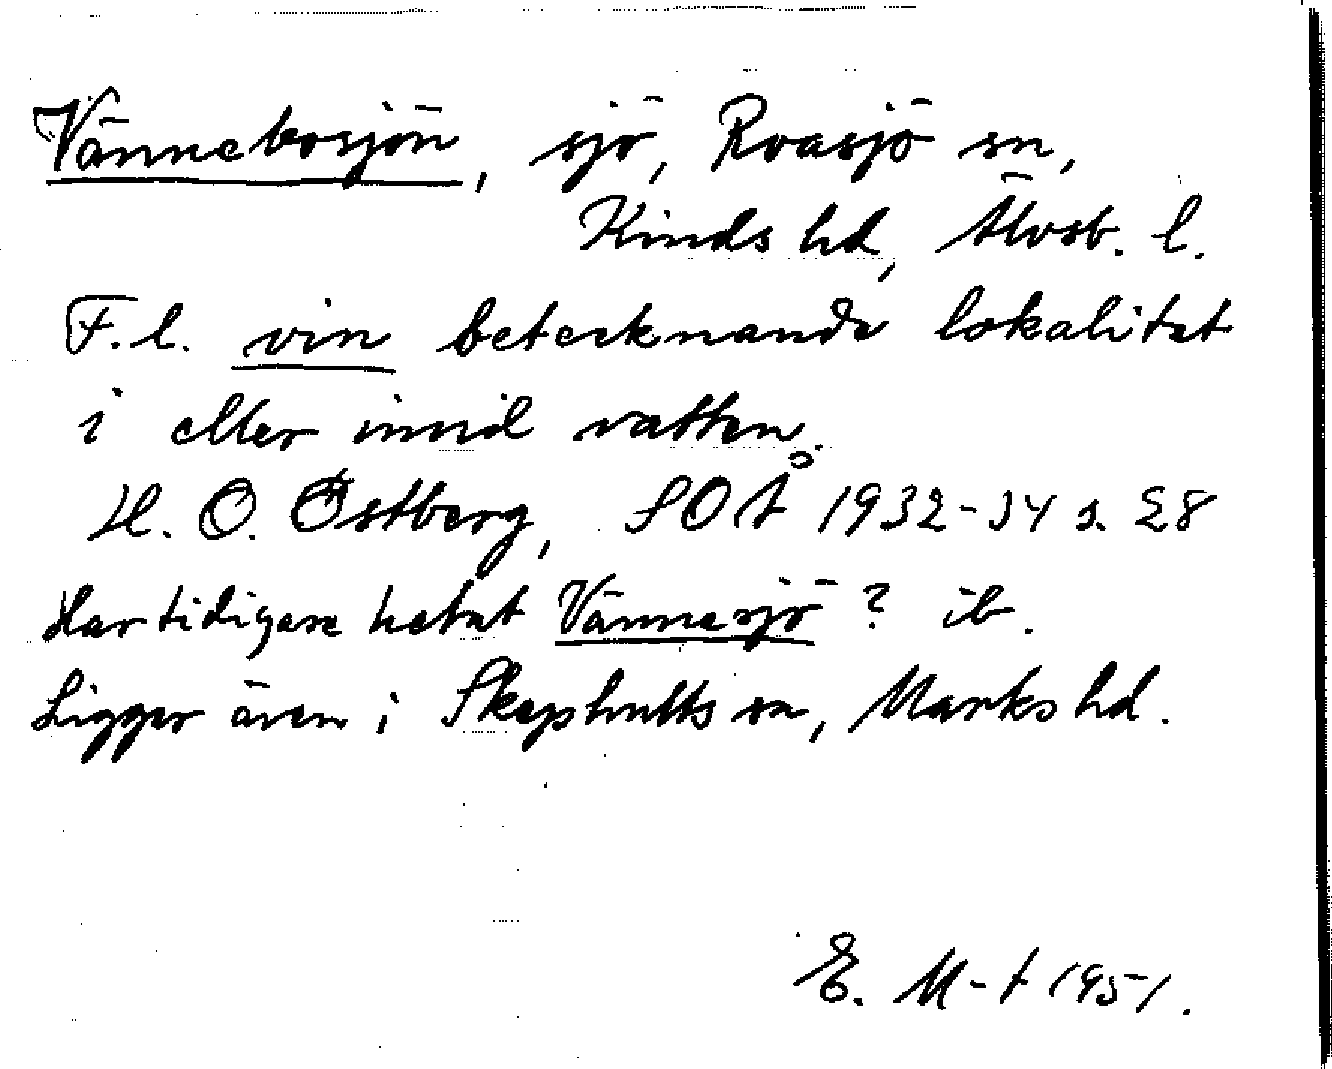 Vännebosjön, sjö, Roasjö sn,
Kinds hd, Älvsb. l.
F.l. vin betecknande lokalitet
i eller invid vatten.
H. O. Östberg, SOÅ 1932-34 s. 28
Har tidigare hetat Vännesjö? ib.
Ligger även i Skephults sn, Marks hd.
E. M-t 1951.